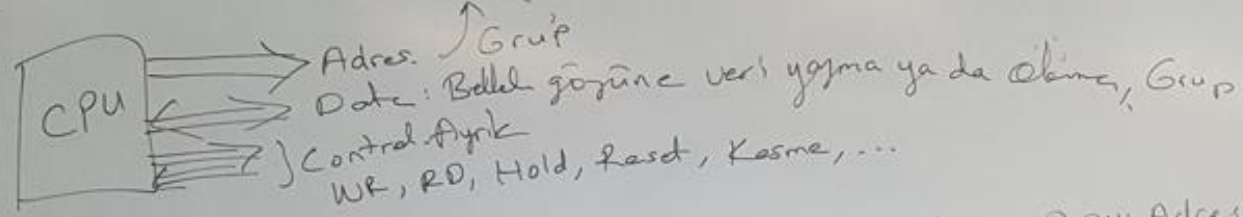 Grup
CPU
Adres.
Data: Bellek gözüne veri yazma ya da okuma, Grup
Control-Ayrık
WR, RD, Hold, Reset, Kesme, ...
Adres